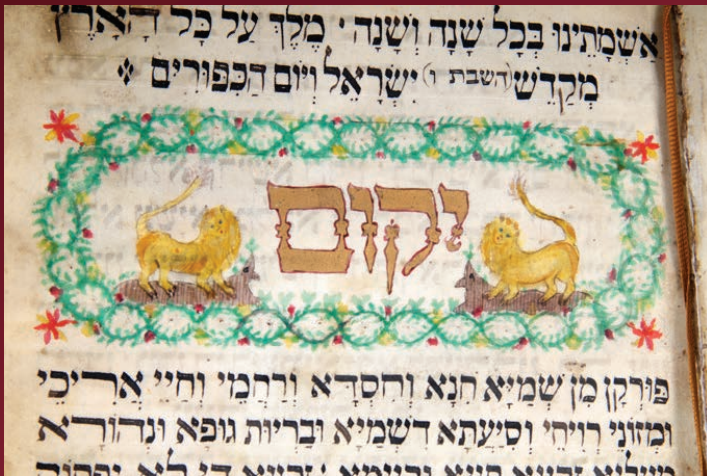 אַשְׁמָתֵינוּ בְּכָל שָׁנָה וְשָׁנָה׳ מֶלֶךְ עַל כָּל הָאָרֶץ
מְקַדֵּשׁ (השבת ו) יִשְׂרָאֵל וְיוֹם הַכִּפּוּרִים
יקום
פּוּרְקָן מִן שְׁמַיָּא חִנָּא וְחִסְדָּא וְרַחֲמֵי וְחַיֵּי אֲרִיכֵי
וּמְזוֹנֵי רְוִיחֵי וְסִיַּעְתָּא דִשְׁמַיָּא וּבַרְיוּת גּוּפָא וּנְהוֹרָא